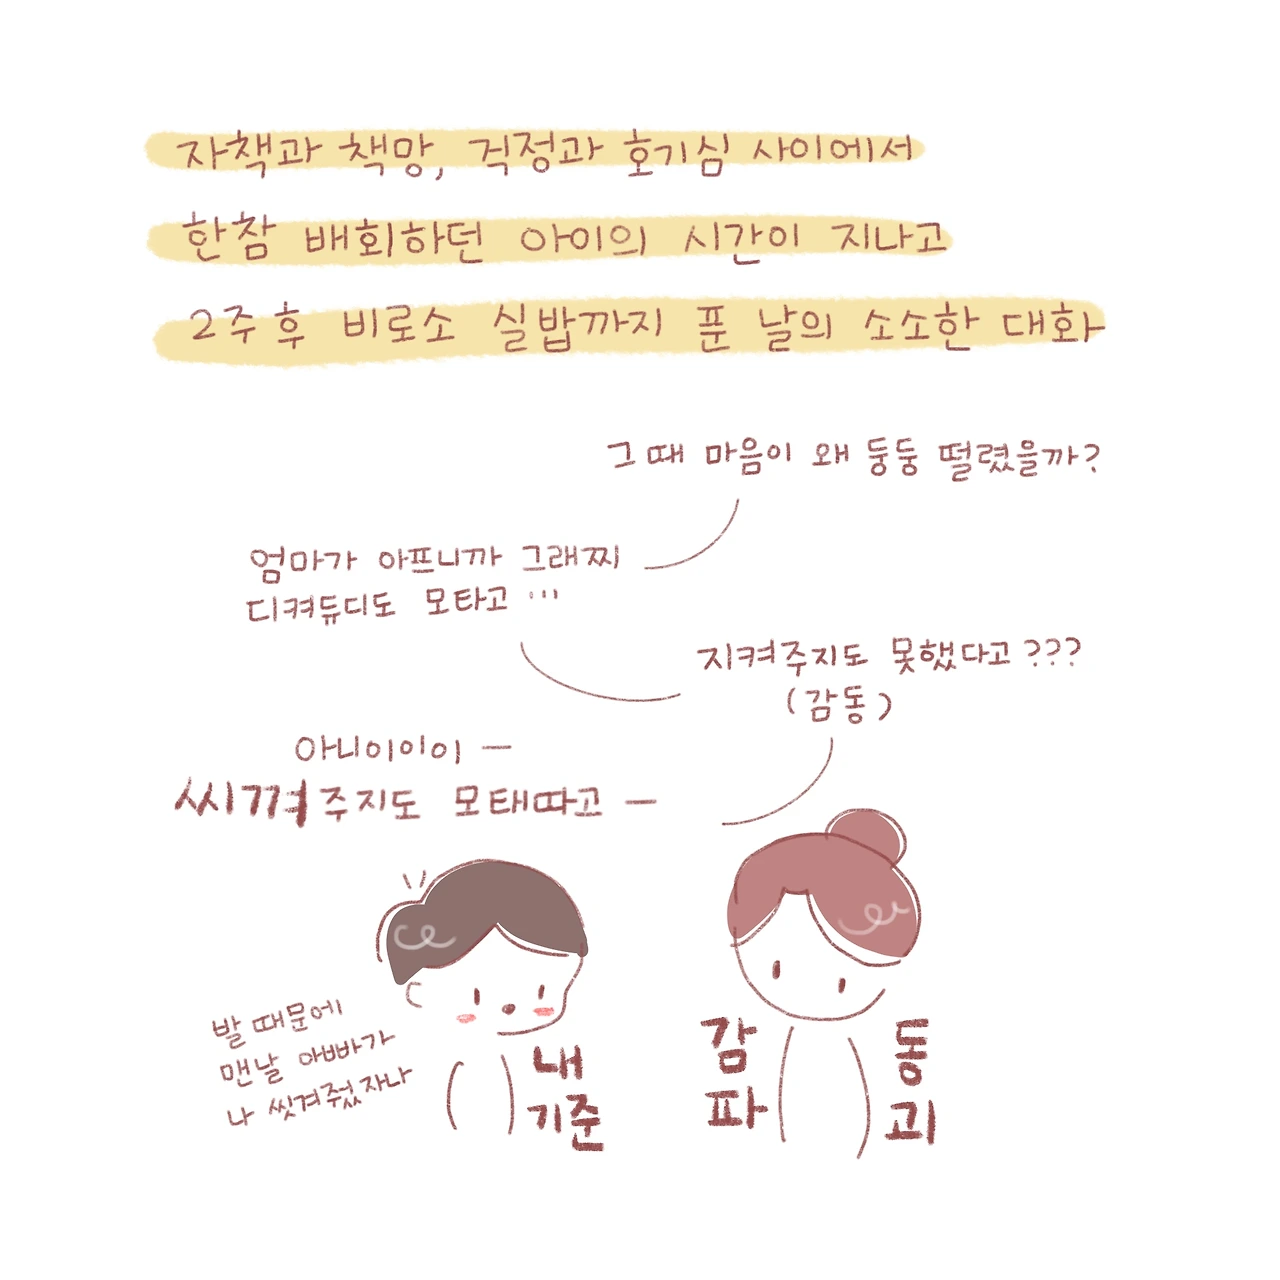 자책과 책망, 걱정과 호기심 사이에서
한참 배회하던 아이의 시간이 지나고
2주 후 비로소 실밥까지 푼 날의 소소한 대화
그때 마음이 왜 둥둥 떨렸을까?
엄마가 아프니까 그래찌
디켜듀디도 모타고 ...
지켜주지도 못했다고???
(감동)
아니이이이 —
씨껴주지도 모태따고 —
발 때문에
맨날 아빠가
나 씻겨줬자나
내
기준
감동
파괴